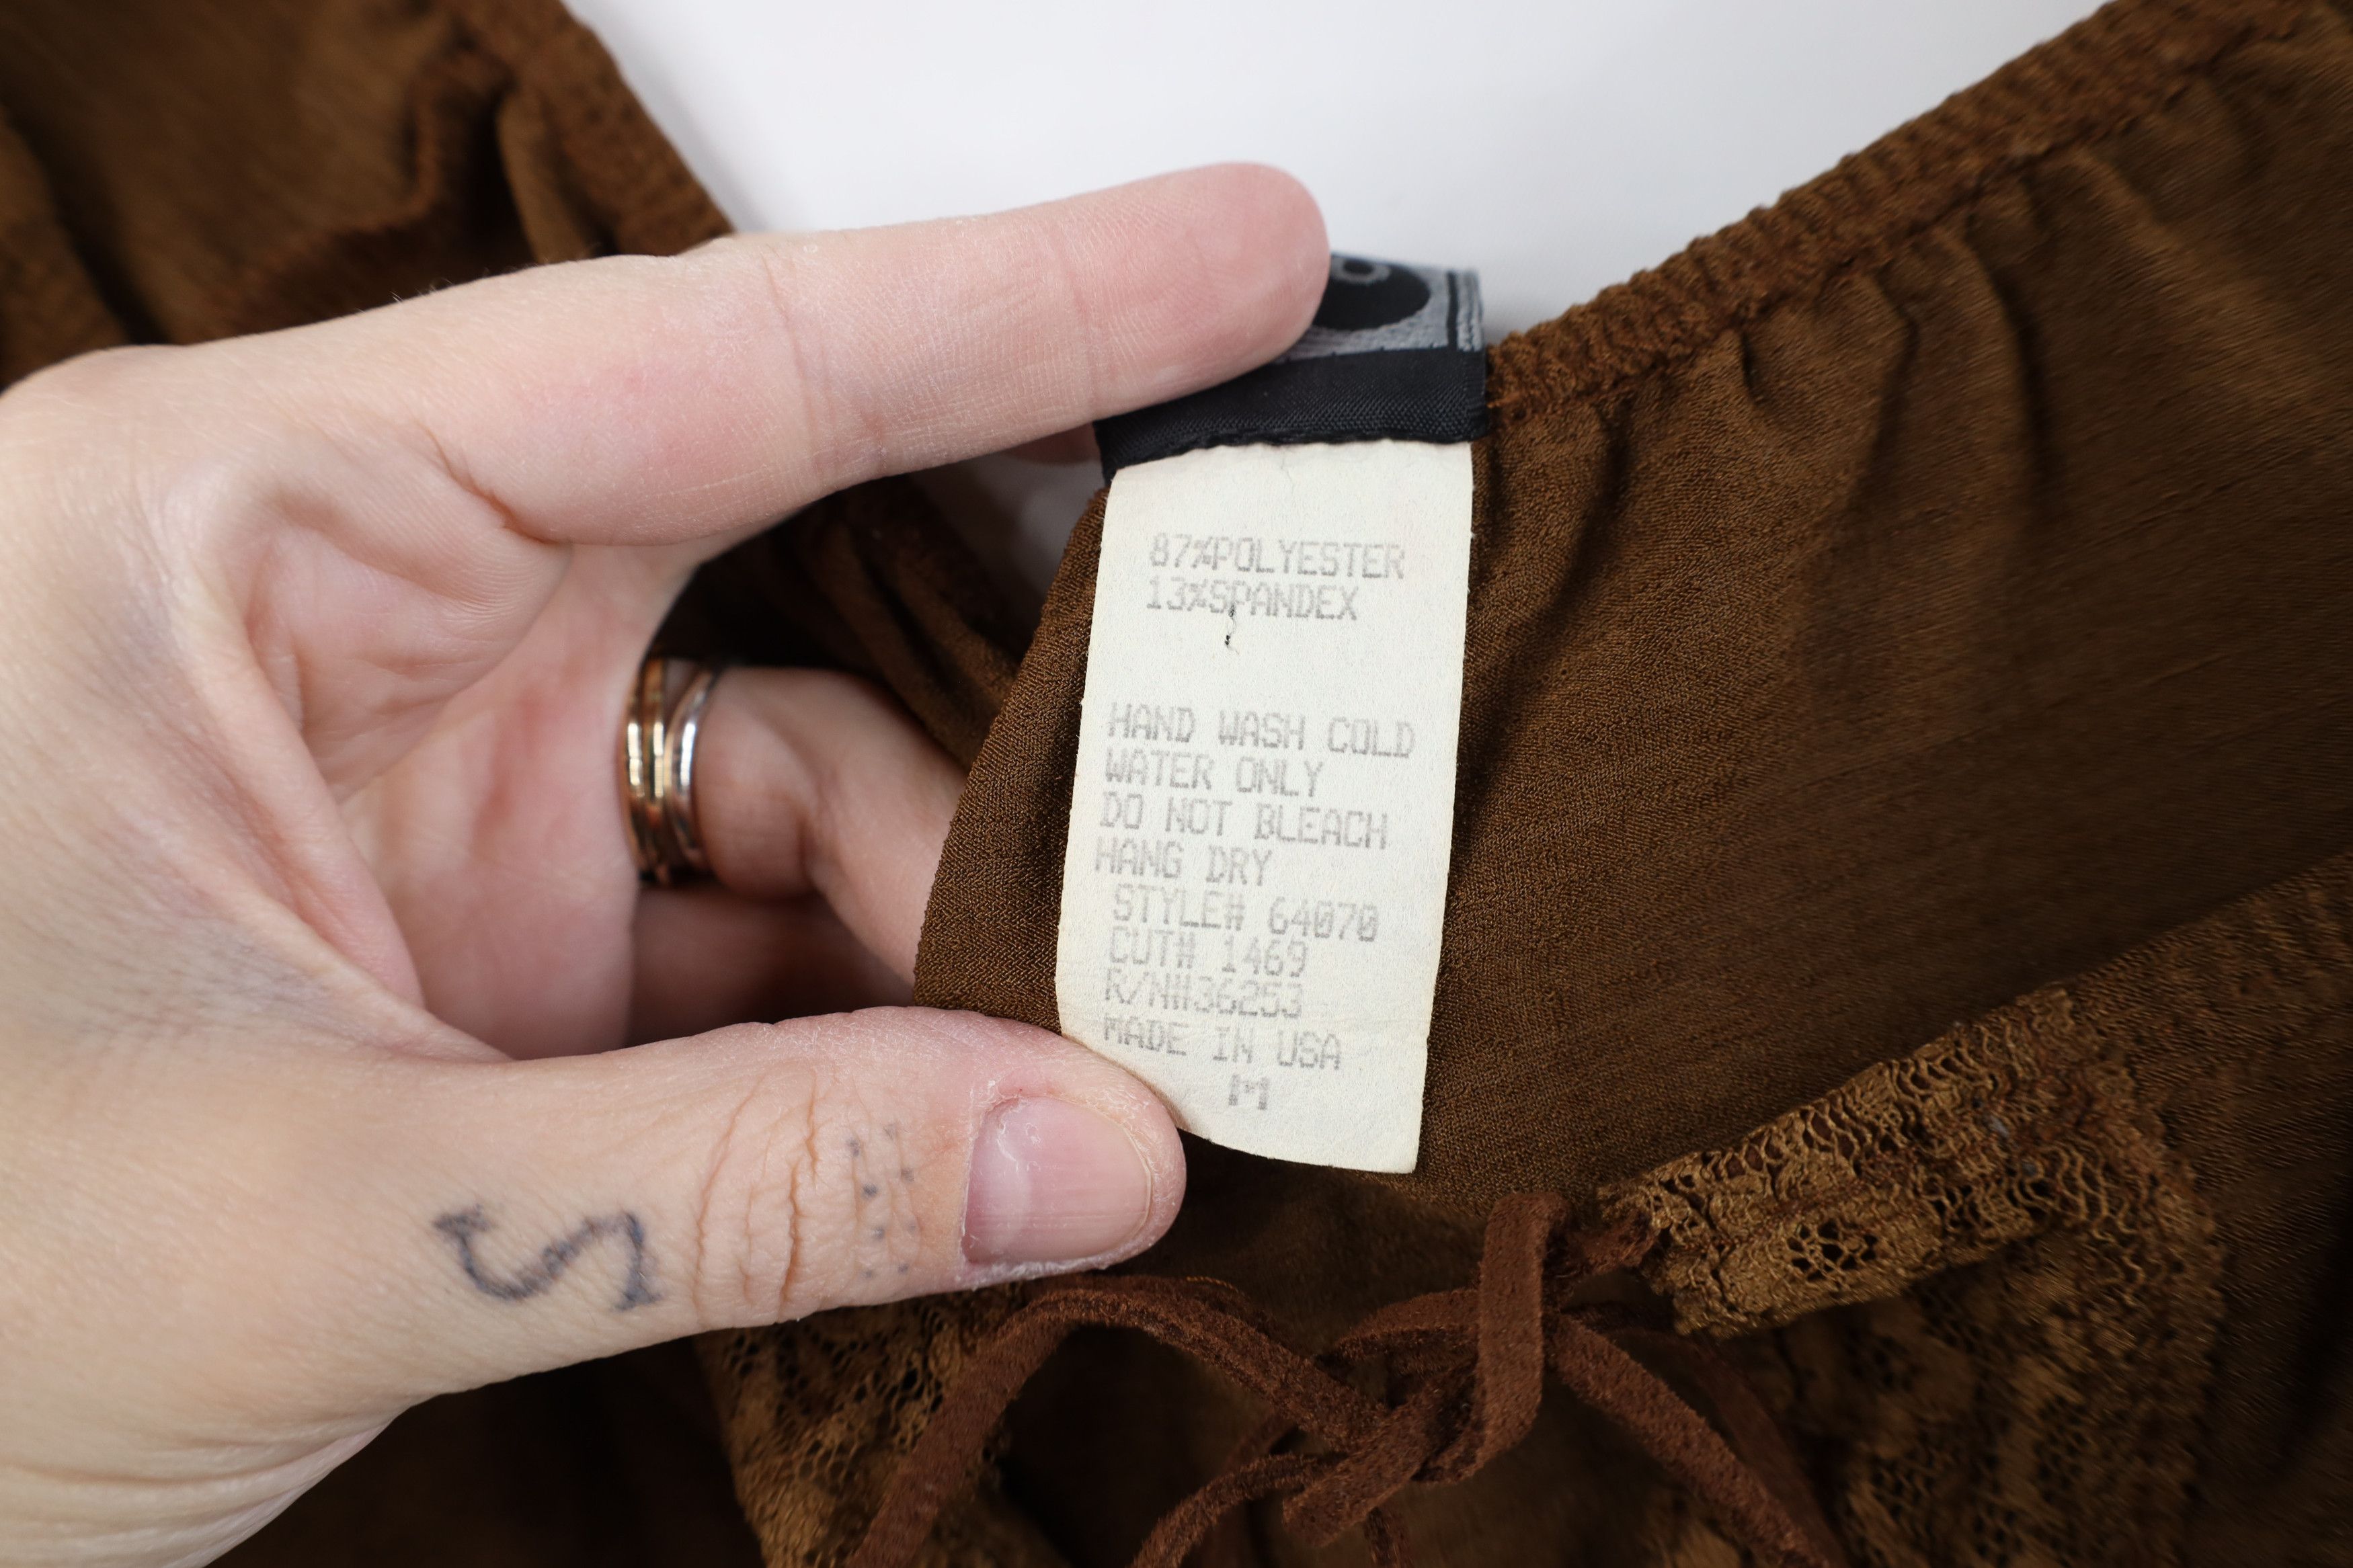 87%POLYESTER
13%SPANDEX
HAND WASH COLD
WATER ONLY
DO NOT BLEACH
HANG DRY
STYLE# 64070
CUT# 1469
R/N#36253
MADE IN USA
M
S